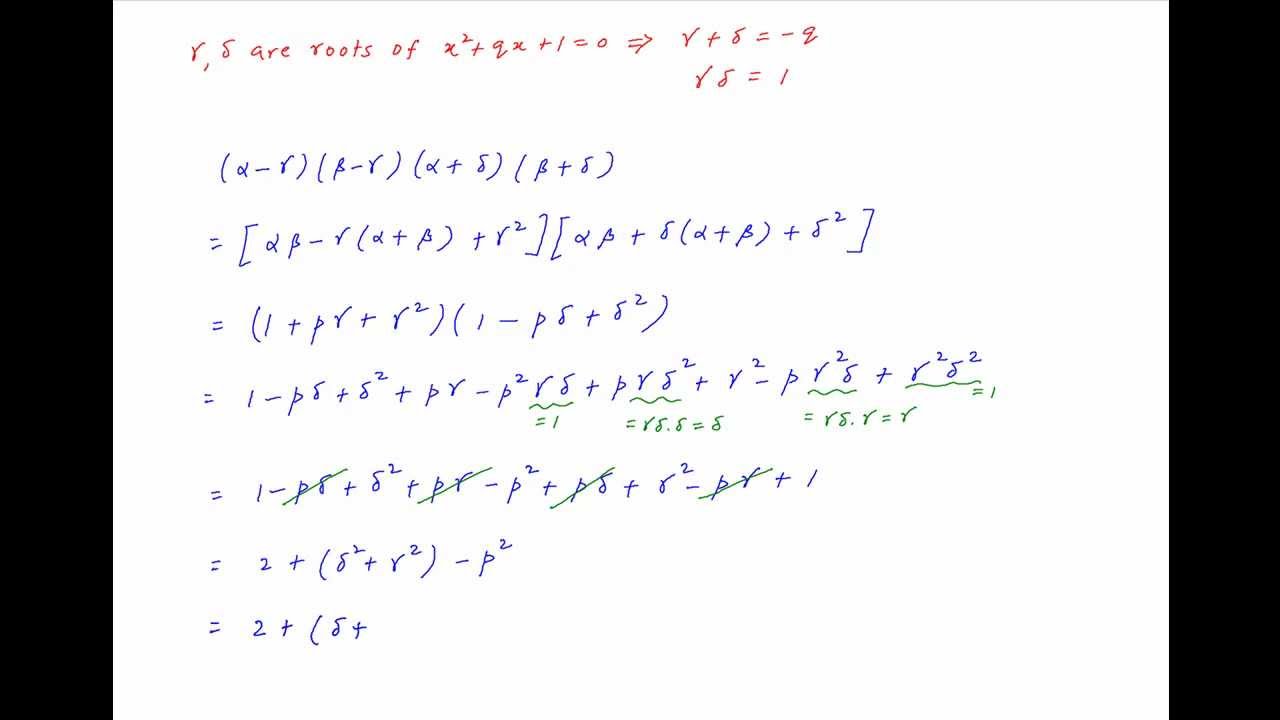 γ, δ are roots of x² + qx + 1 = 0 ⇒ γ + δ = -q
γδ = 1
(α - γ)(β - γ)(α + δ)(β + δ)
= [αβ - γ(α + β) + γ²][αβ + δ(α + β) + δ²]
= (1 + pγ + γ²)(1 - pδ + δ²)
= 1 - pδ + δ² + pγ - p²γδ + pγδ² + γ² - pγ²δ + γ²δ²
=1 =γδ.δ=δ =γδ.γ=γ =1
= 1 - pδ + δ² + pγ - p² + pδ + γ² - pγ + 1
= 2 + (δ² + γ²) - p²
= 2 + (δ +